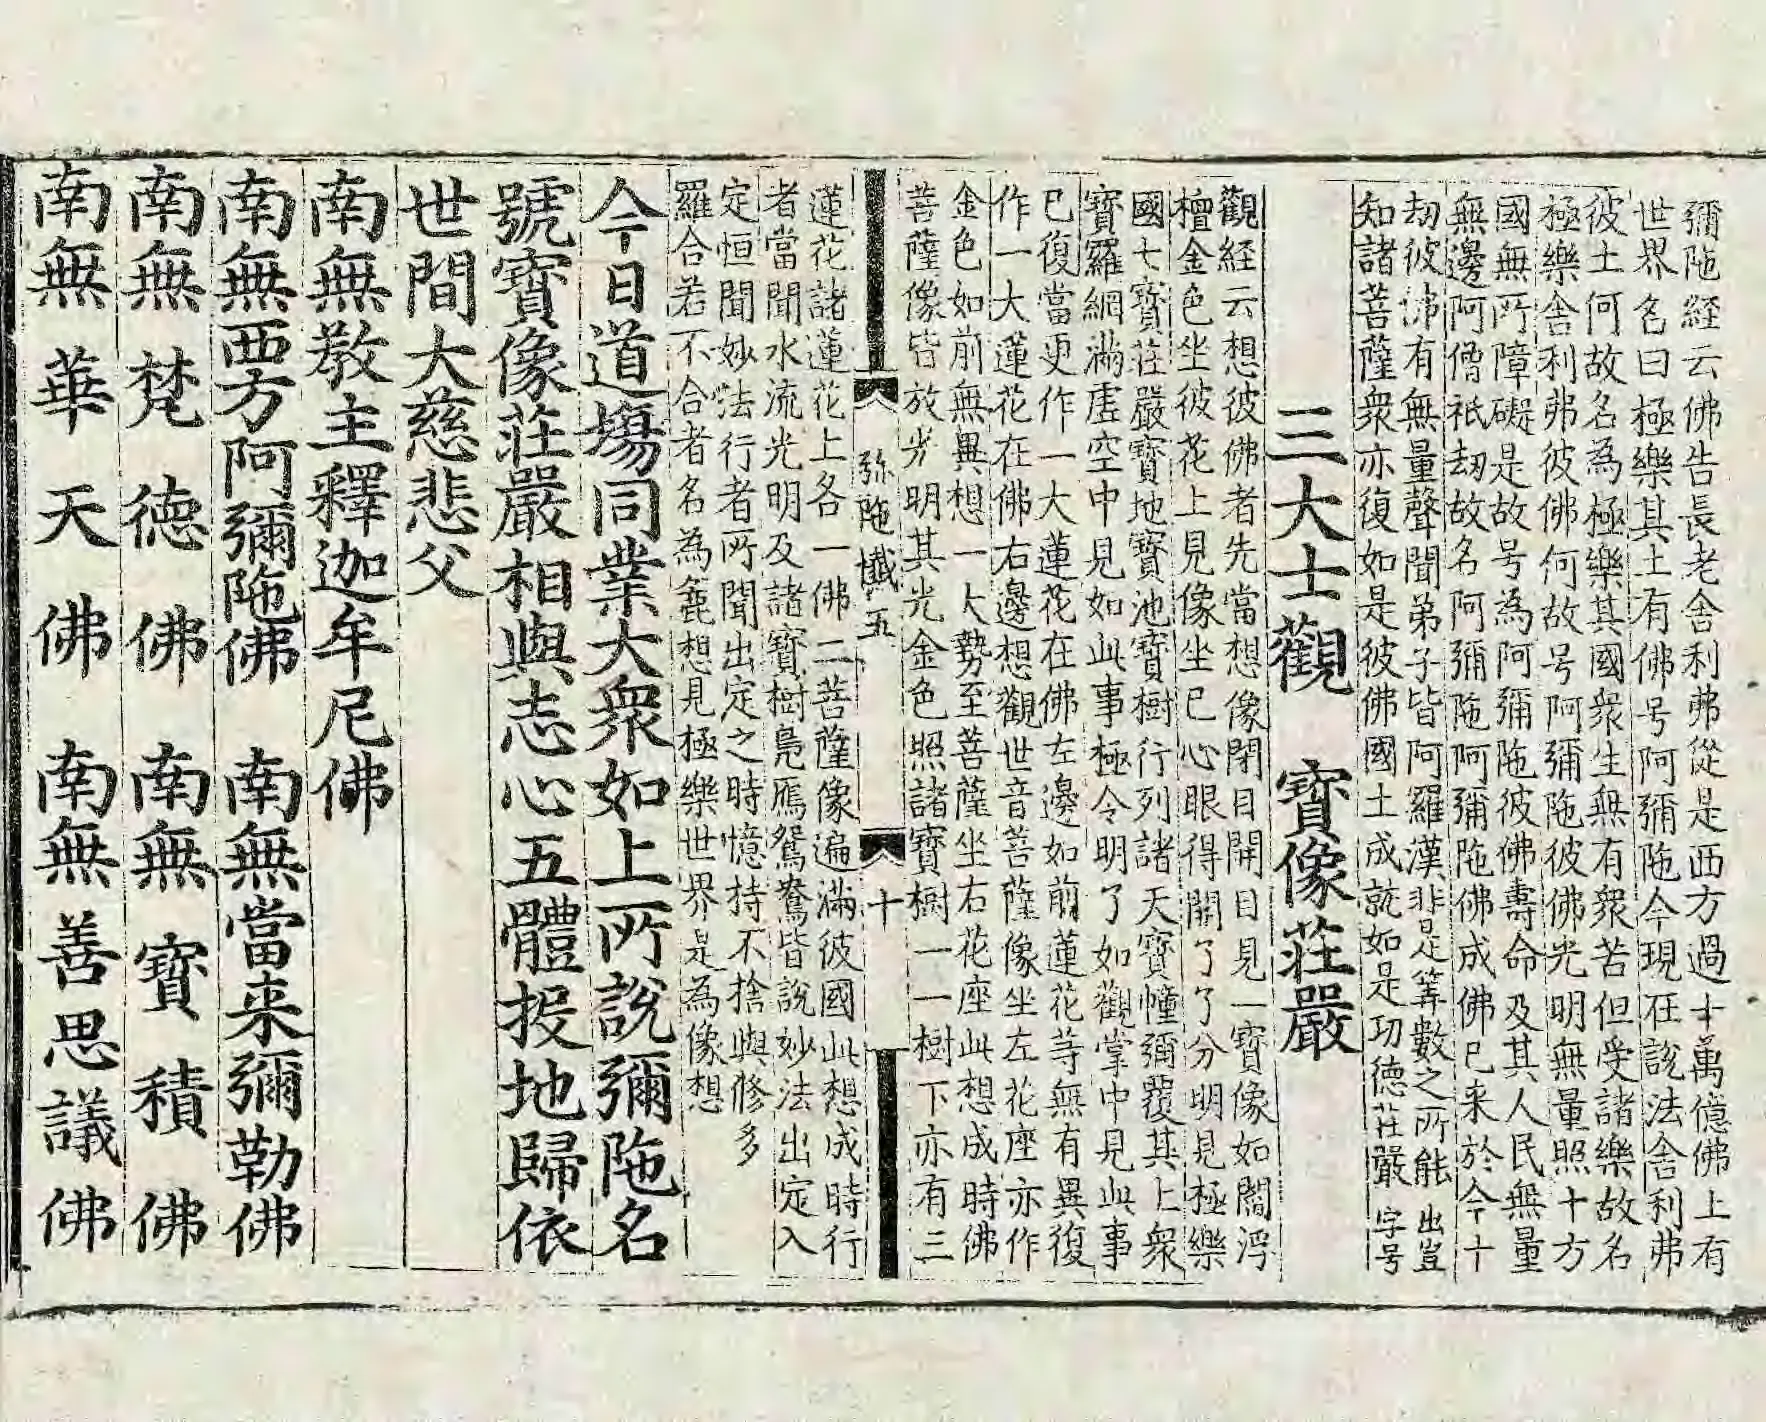 彌陁経云佛告長老舎利弗從是西方過十萬億佛上有
世界名曰極樂其土有佛号阿彌陁今現在說法舎利弗
彼土何故名為極樂其國衆生無有衆苦但受諸樂故名
極樂舎利弗彼佛何故号阿彌陁彼佛光明無量照十方
國無所障礙是故号為阿彌陁彼佛壽命及其人民無量
無邊阿僧祇刼故名阿彌陁阿彌陁佛成佛已来於今十
刼彼佛有無量聲聞弟子皆阿羅漢非是筭數之所能 出豈
知諸菩薩衆亦復如是彼佛國土成就如是功德莊嚴 字号
三大士觀 寶像莊嚴
觀経云想彼佛者先當想像閉目開目見一寶像如閻浮
檀金色坐彼花上見像坐已心眼得開了了分明見極樂
國七寶莊嚴寶地寶池寶樹行列諸天寶幢彌覆其上衆
寶羅網滿虛空中見如此事極令明了如觀掌中見此事
已復當更作一大蓮花在佛左邊如前蓮花等無有異復
作一大蓮花在佛右邊想觀世音菩薩像坐左花座亦作
金色如前無異想一大勢至菩薩坐右花座此想成時佛
菩薩像皆放光明其光金色照諸寶樹一一樹下亦有三
弥陁懺五 十
蓮花諸蓮花上各一佛二菩薩像遍滿彼國此想成時行
者當聞水流光明及諸寶樹鳬鴈鴛鴦皆說妙法出定入
定恒聞妙法行者所聞出定之時憶持不捨與修多
羅合若不合者名為麁想見極樂世界是為像想
今日道場同業大衆如上所說彌陁名
號寶像莊嚴相與志心五體投地歸依
世間大慈悲父
南無敎主釋迦牟尼佛
南無西方阿彌陁佛 南無當来彌勒佛
南無梵德佛 南無寶積佛
南無華天佛 南無善思議佛